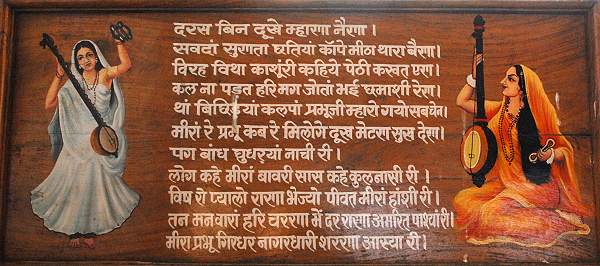 दरस बिन दूखे म्हारणा नैणा ।
सबदां सुणता घतियां काँपे मीठा थारा बैणा ।
विरह विथा काशूंरी कहिये पेठी करवत एरा ।
कल ना पड़त हरि मग जोतां भई छमाशी रेरा ।
थां बिछड़ियां कलपां प्रभूजी म्हारो गयो सब चेन ।
मीरां रे प्रभू कब रे मिलोगे दूख मेटरा सुख देरा ।
पग बांध घुघर्यां नाची री ।
लोग कहे मीरां बावरी सास कहे कुलनासी री ।
विष रो प्यालो राणा भेज्यो पीवत मीरां हांशी री ।
तन मन वारां हरि चररणा में दरराणा अमरित पाश्यांरी ।
मीरा प्रभू गिरधर नागरधारी शररणा आस्या री ।